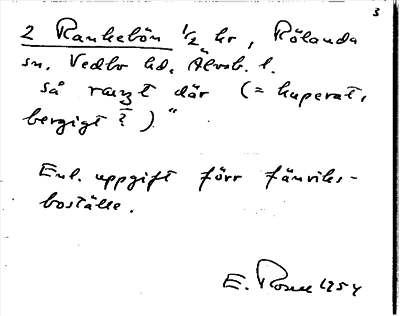 3
2 Rankebön 1/2 hr, Rölanda
sn. Vedbo hd. Älvsb. l.
"så ranzt där (= kuperat,
bergigt?)."
Enl. uppgift förr fänriks-
boställe.
E. Rosell 1954